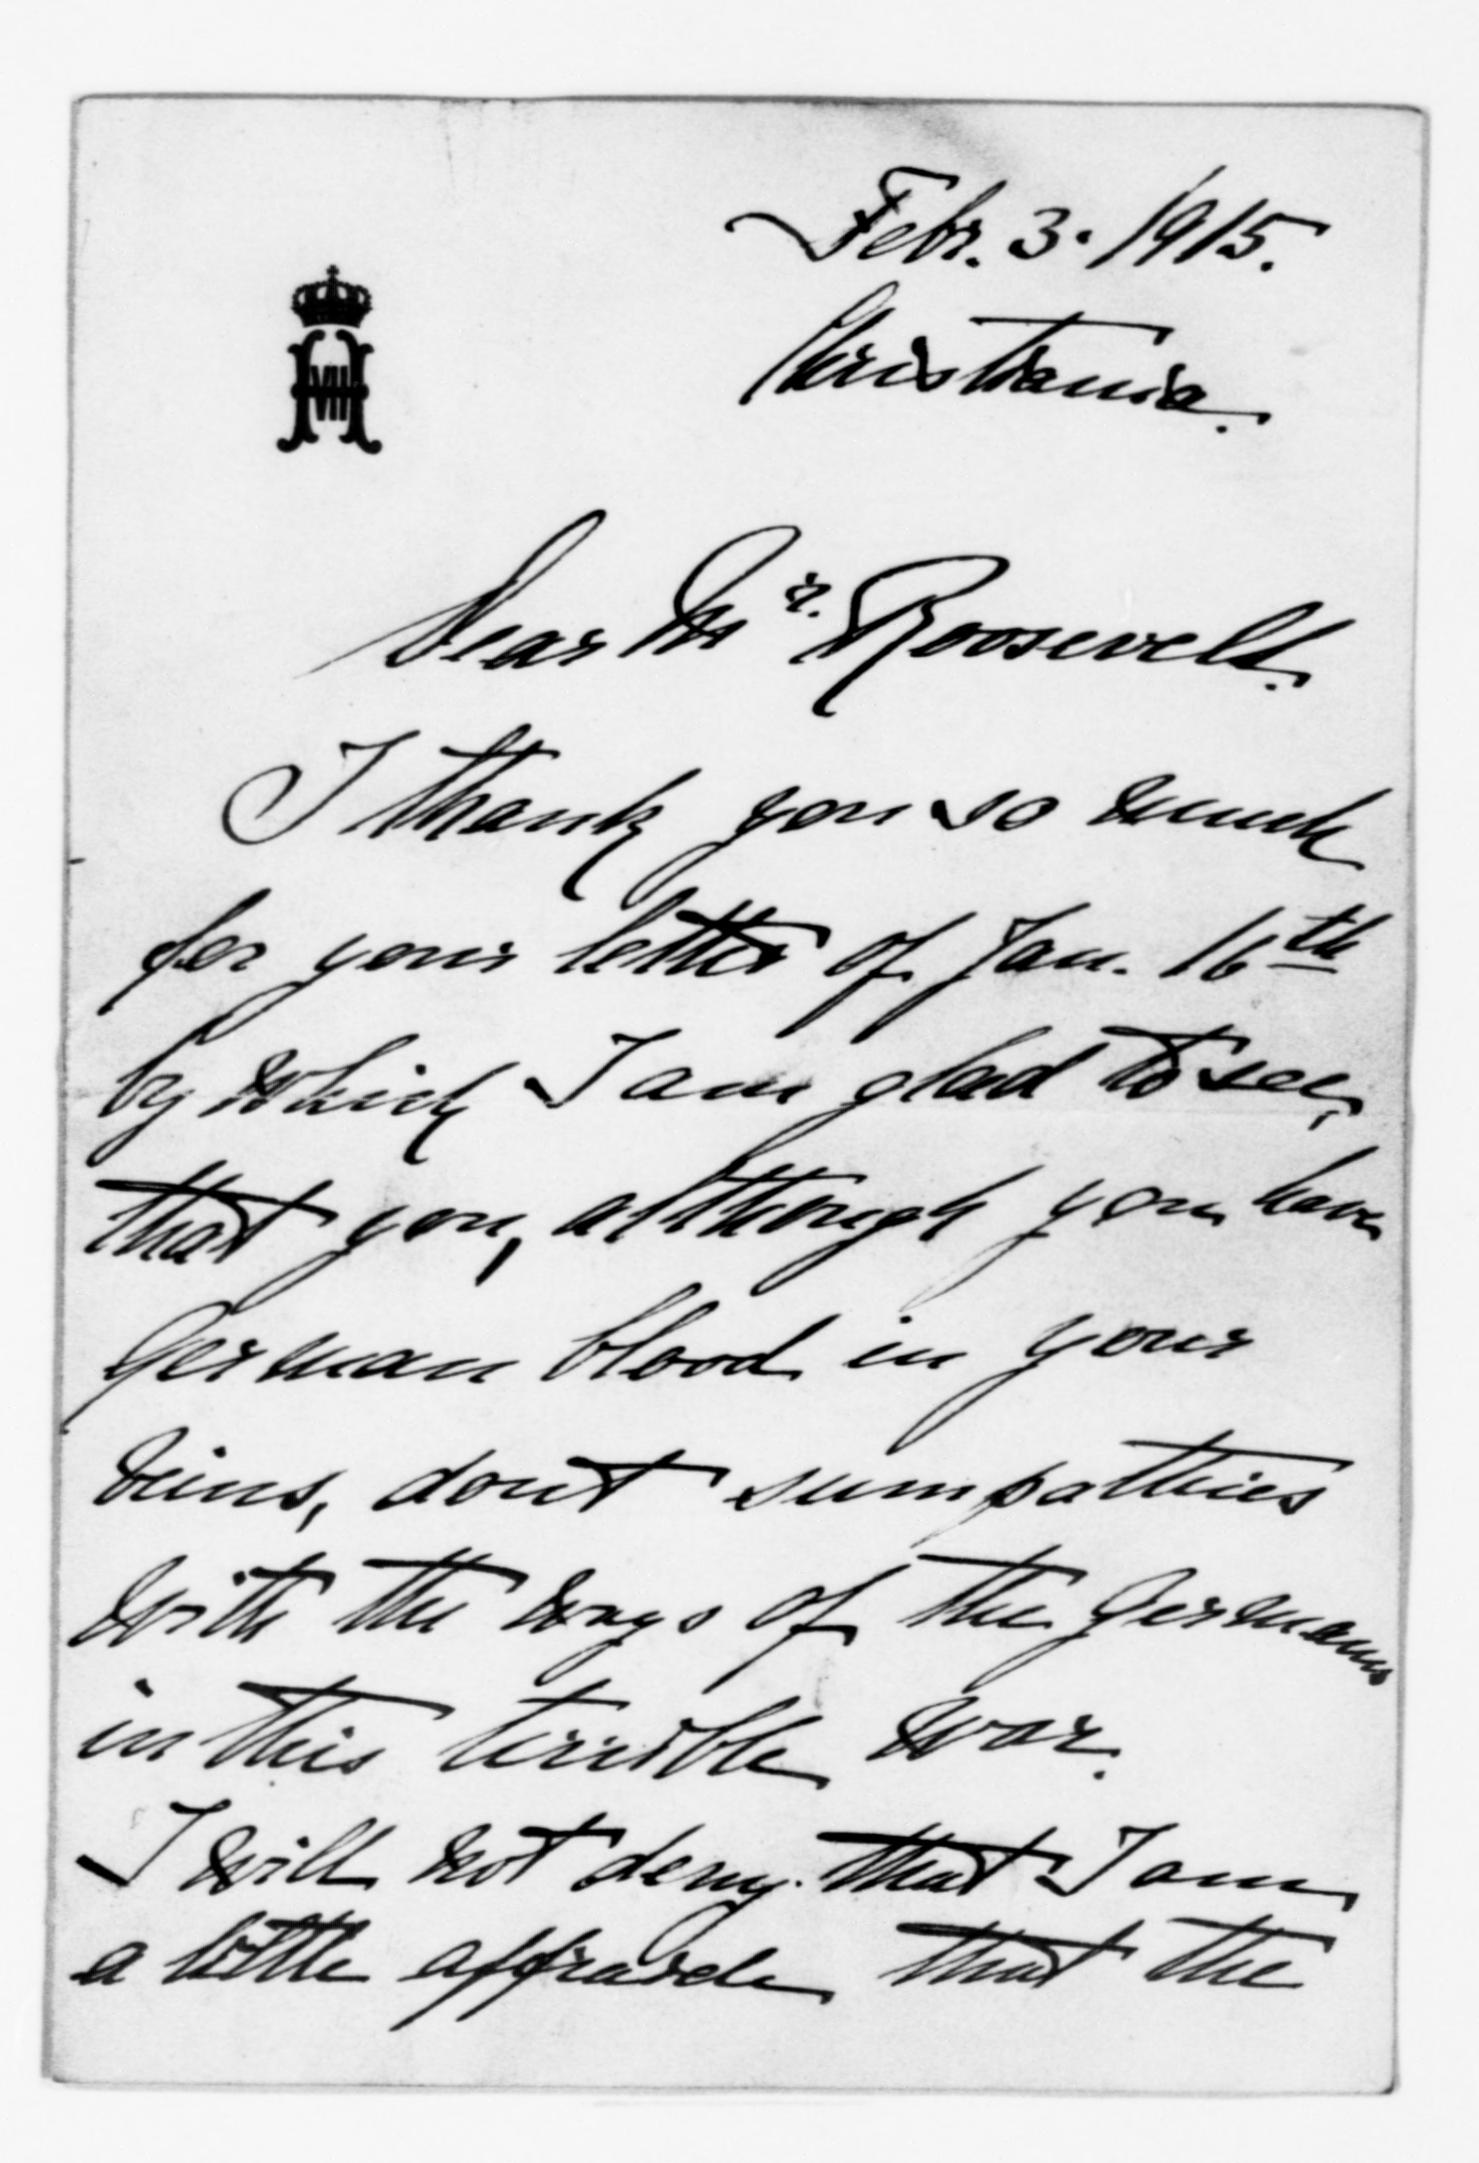 Febr. 3. 1915.
Christiania.
H VII
Dear Mr. Roosevelt.
I thank you so much
for your letter of Jan. 16th
by which I am glad to see,
that you, although you have
German blood in your
veins, dont sumpathies
with the ways of the Germans
in this terrible war.
I will not deny that I am
a little affraide that the